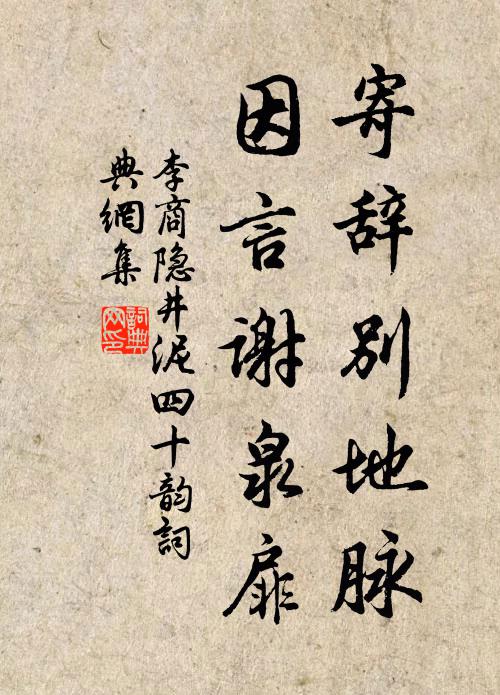 寄辞别地脉
因言谢泉扉
李商隐井泥四十韵詞
典網集
詞典
网印